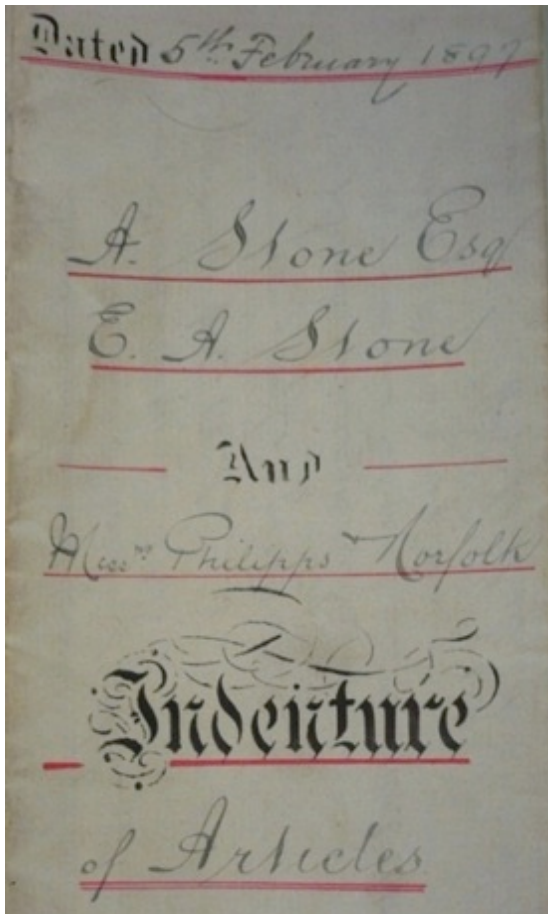 Dated 5th February 1897
A. Stone Esq
E. A. Stone
And
Messrs Philipps & Norfolk
Indenture
of Articles